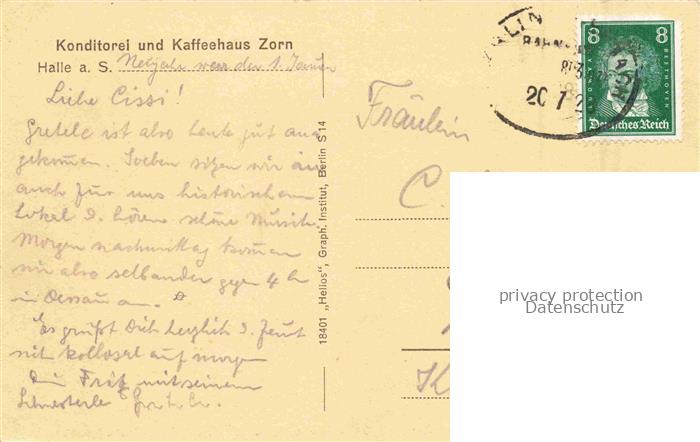 Konditorei und Kaffeehaus Zorn
Halle a. S. Neujahr der 1. Januar
Liebe Cissi!
Gretele ist also heute gut ange
kommen. Soeben sitzen wir in
auch für uns historischem
Lokal u. hören schöne Musik.
Morgen nachmittag kommen
wir also selbander gegen 4 h
in Dessau an.
Es grüßt Dich herzlich u. freut
sich kollosal auf morgen
Dein Fritz mit seinem
Schwesterle Gretele.
18401 „Helios", Graph. Institut, Berlin S 14
Fräulein
C.
K
20 7 2
8 8
BEETHOVEN
Deutsches Reich
privacy protection
Datenschutz